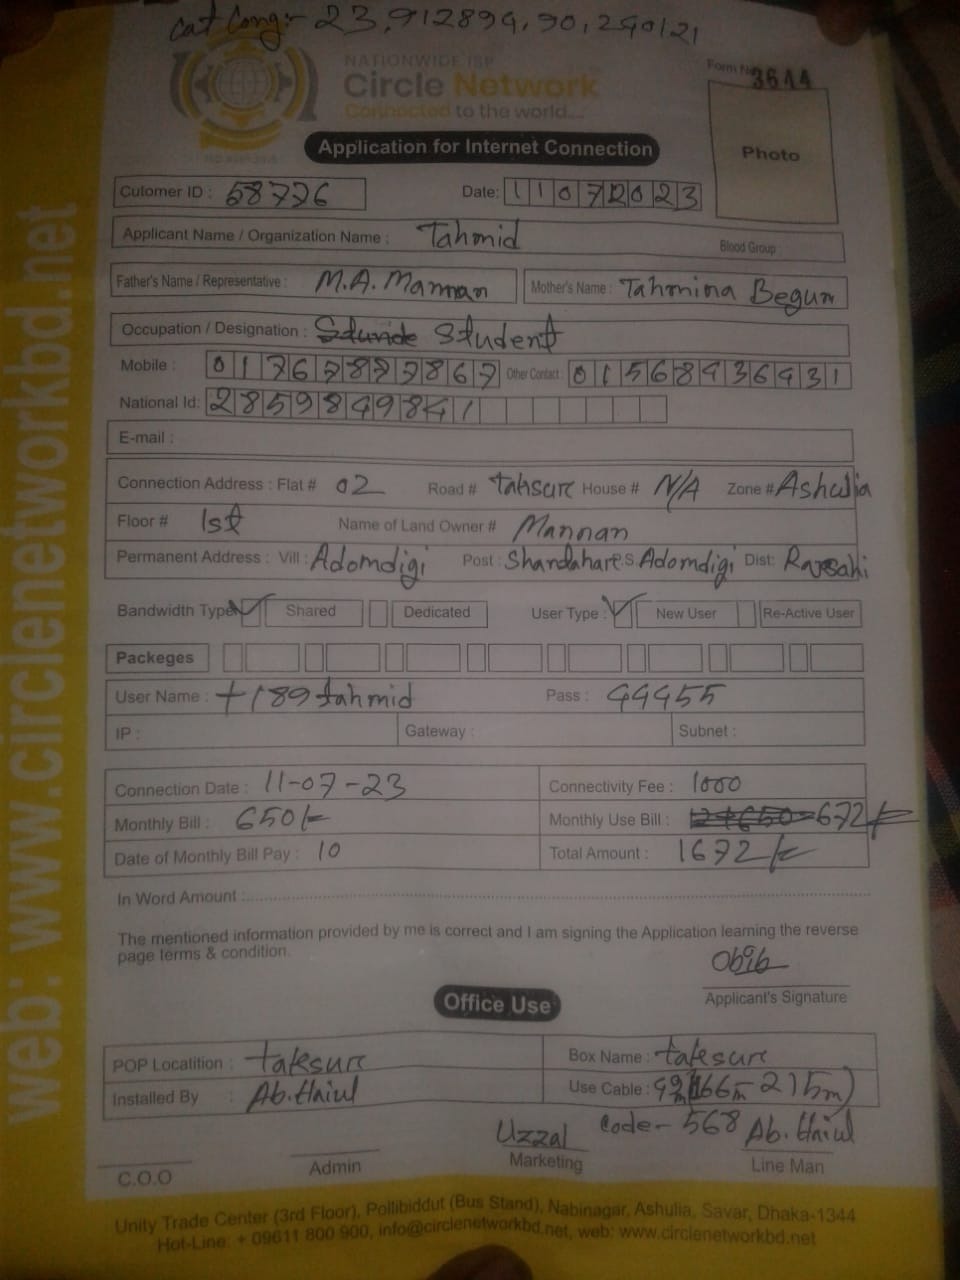 Cat Cong:- 23.912894, 90.290121
NATIONWIDE ISP
Circle Network
Connected to the world...
Form No 3644
Application for Internet Connection
Photo
Cutomer ID : 58776
Date: 11072023
Applicant Name / Organization Name : Tahmid
Blood Group
Father's Name / Representative : M.A. Mannan Mother's Name : Tahmina Begum
Occupation / Designation : Student
Mobile : Other Contact : 01568436431
National Id: 2859849841
E-mail :
Connection Address : Flat # 02 Road # House # N/A Zone # Ashulia
Floor # 1st Name of Land Owner # Mannan
Permanent Address : Vill : Adomdigi Post : Shandahar P.S. Adomdigi Dist: Rajsahi
Bandwidth Type Shared Dedicated User Type : New User Re-Active User
Packeges
User Name : t189tahmid Pass : 44455
IP : Gateway : Subnet :
Connection Date : 11-07-23 Connectivity Fee : 1000
Monthly Bill : 650/- Monthly Use Bill : 672/-
Date of Monthly Bill Pay : 10 Total Amount : 1672/-
In Word Amount :
The mentioned information provided by me is correct and I am signing the Application learning the reverse
page terms & condition.
Applicant's Signature
Office Use
POP Locatition : Box Name :
Installed By : Ab. Haiul Use Cable :
Code- 568
Uzzal Ab. Haiul
C.O.O Admin Marketing Line Man
Unity Trade Center (3rd Floor), Pollibiddut (Bus Stand), Nabinagar, Ashulia, Savar, Dhaka-1344
Hot-Line: + 09611 800 900, info@circlenetworkbd.net, web: www.circlenetworkbd.net
web: www.circlenetworkbd.net